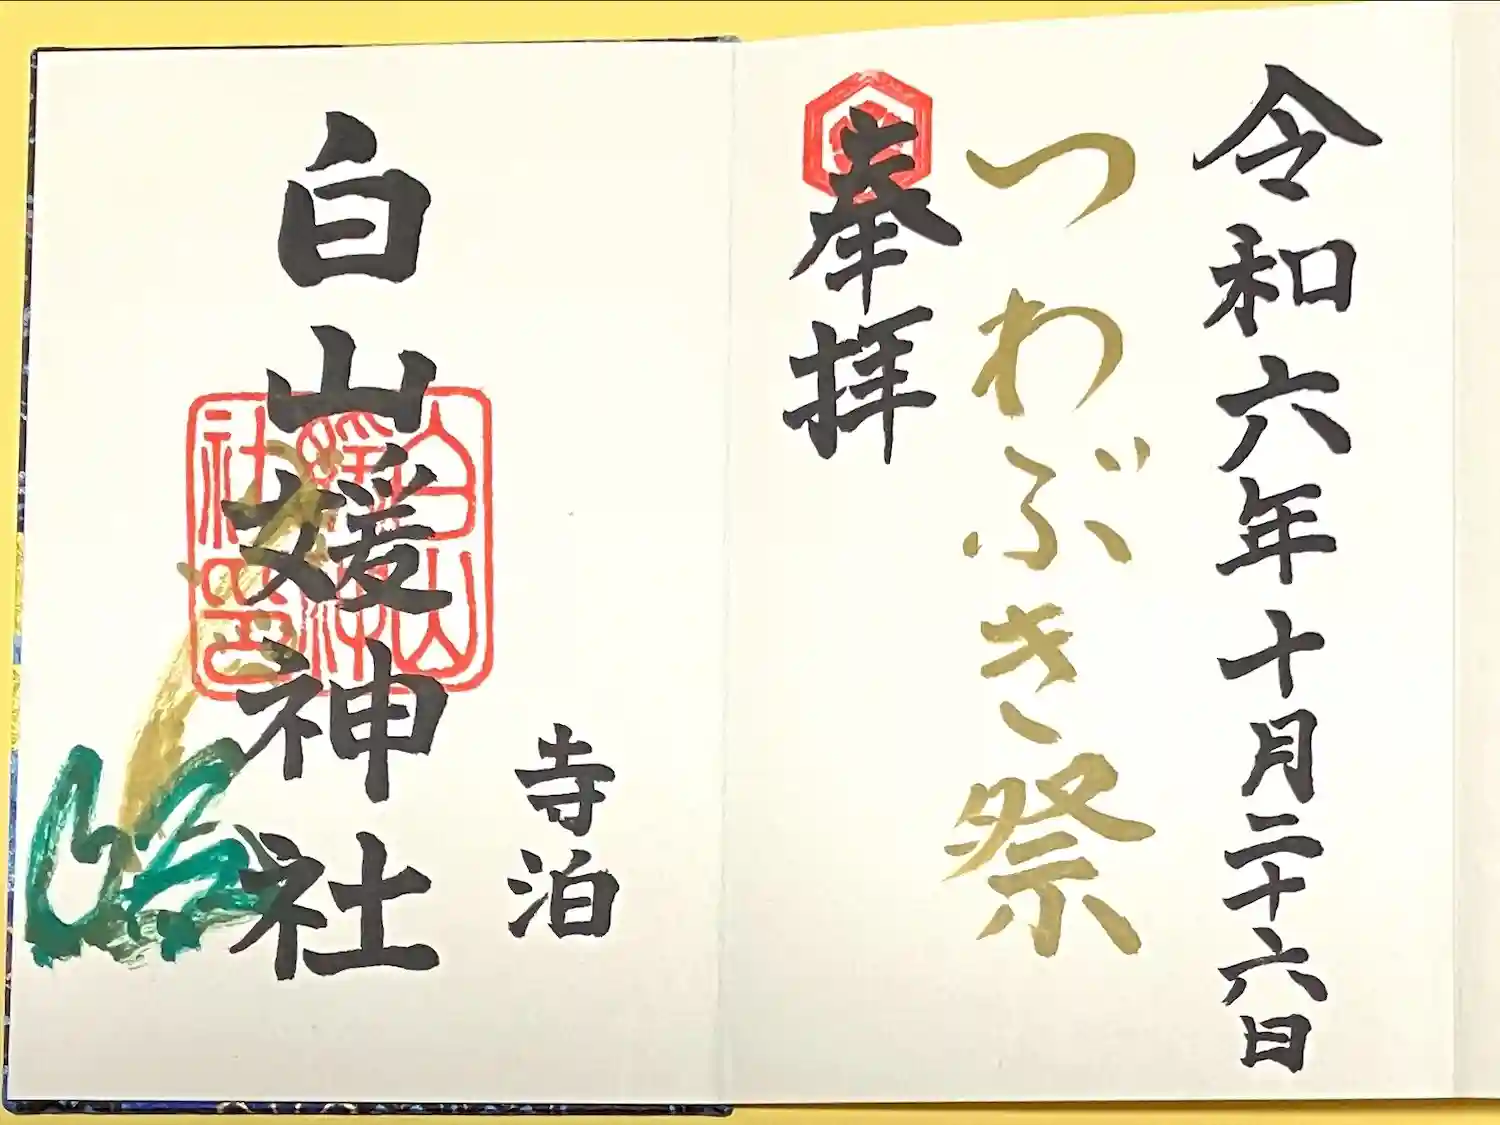 令和六年十月二十六日
つわぶき祭
奉拝
寺泊
白山媛神社
白山媛神社印